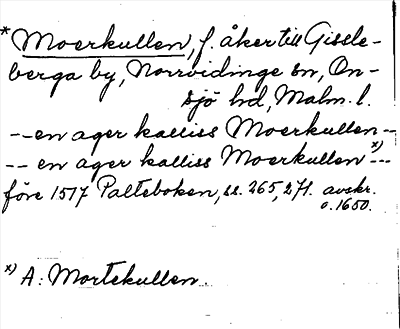 *Moerkullen, f. åker till Gissle-
berga by, Norrvidinge sn, On-
sjö hd, Malm. l.
--en ager kalliss Moerkullen--
-- en ager kalliss Moerkullen x)--
före 1517 Palteboken, ss. 265, 271. avskr.
o. 1650.
x) A: Mortekullen.